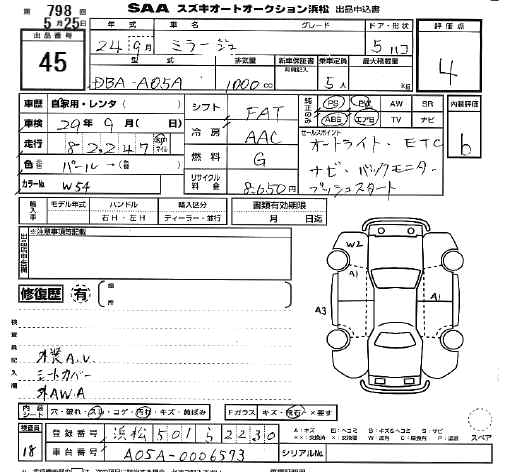 第 798 回
5月25日
SAA スズキオートオークション浜松 出品申込書
出品番号
45
年式 グレード ドア・形状
24年9月 ミラージュ 5 ハコ
型式 排気量 新車保証書 乗車定員 最大積載量
DBA-A05A 1000cc 5人 kg
評価点
4
内装評価
b
車歴 自家用・レンタ( )
車検 29年9月( 日)
走行 82247 km マイル
色 パール→(色 )
カラーNo. W54
シフト FAT
冷房 AAC
燃料 G
リサイクル料金 8,650円
純正のみ PS PW AW SR
ABS エアB TV ナビ
セールスポイント
オートライト・ETC
ナビ・バックモニター
プッシュスタート
輸入車 モデル年式 ハンドル 輸入区分 書類有効期限
右H・左H ディーラー・並行 月 日迄
出品店申告欄
※注意事項等記載
修復歴 有
箇所
W2
A1
A3
A1
検査員記入欄
外装A.V
シートカバー
外AW.A
内装シート 穴・破れ・スレ・コゲ・汚れ・キズ・黄ばみ
Fガラス キズ・飛石・×要す
検査員
18
登録番号 浜松501ら2230
車台番号 A05A-0006573
シリアルNo.
A:キズ E:エクボ B:キズ&ヘコミ S:サビ
スペア